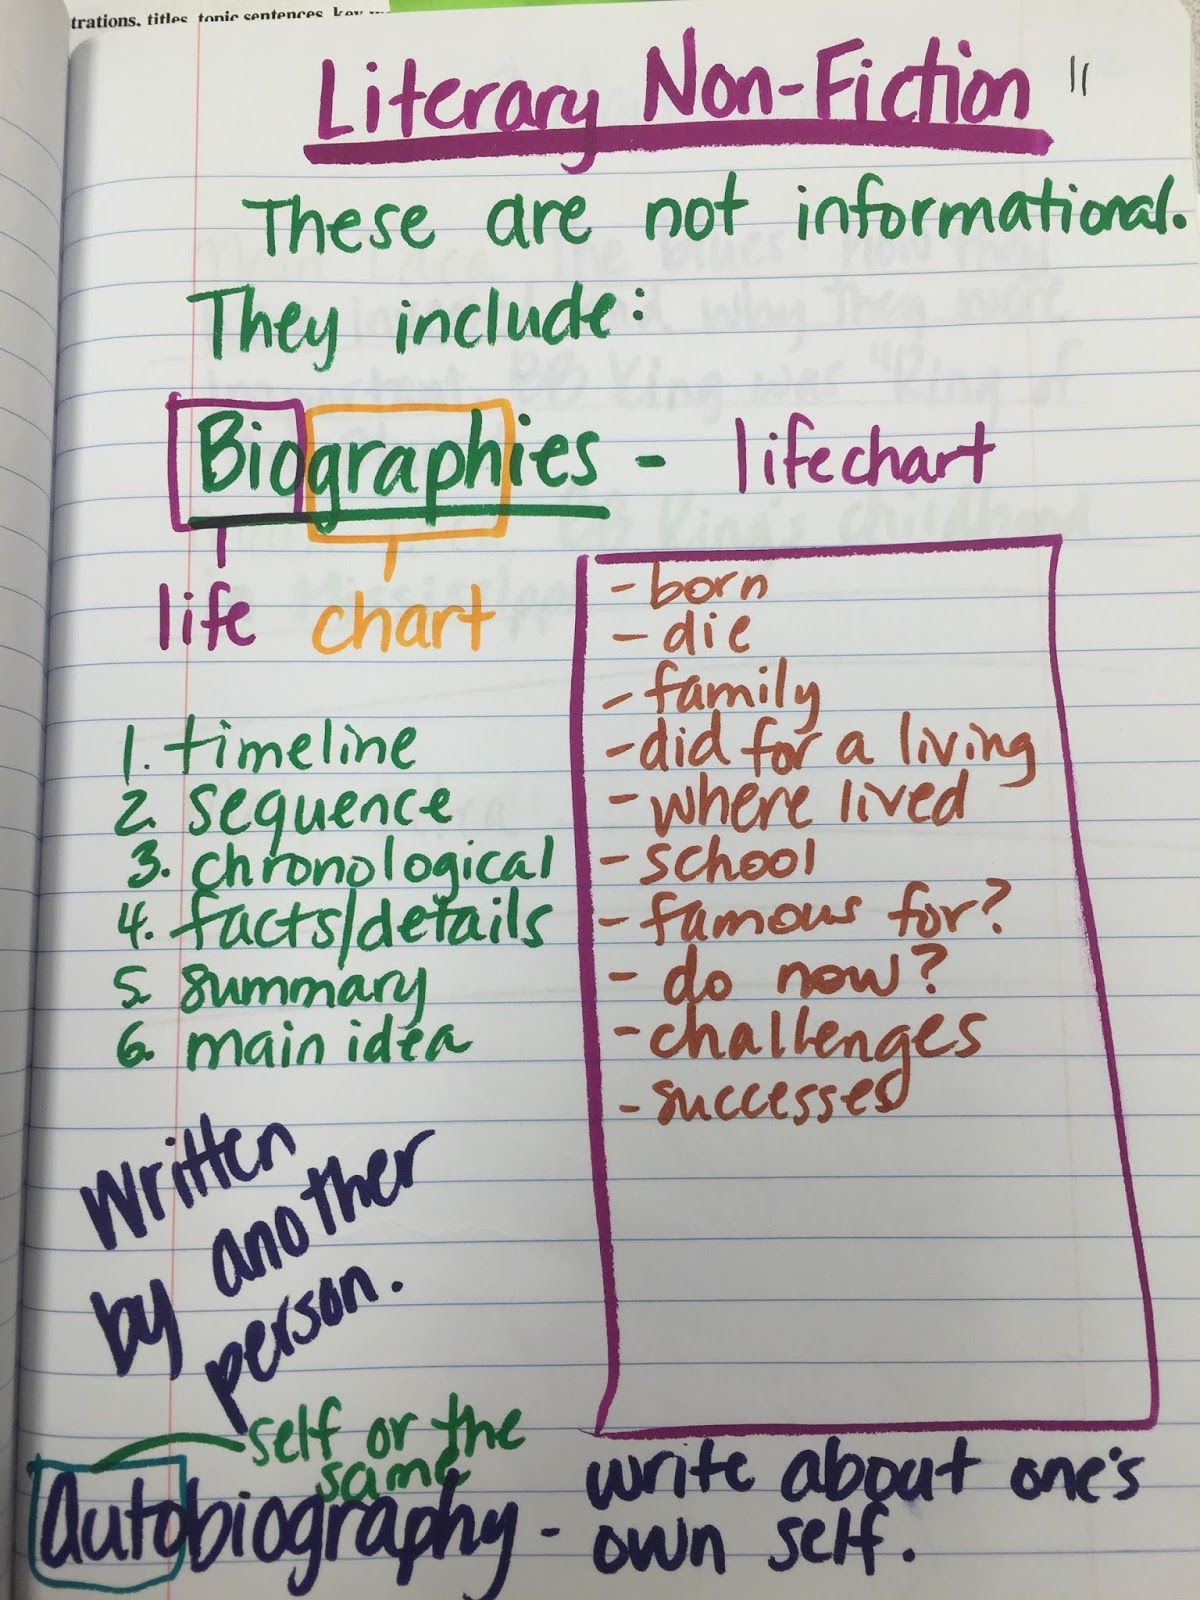 trations, titles, topic sentences, key
Literary Non-Fiction
11
These are not informational.
They include:
Biographies - lifechart
life chart
1. timeline
2. sequence
3. chronological
4. facts/details
5. summary
6. main idea
- born
- die
- family
- did for a living
- where lived
- school
- famous for?
- do now?
- challenges
- successes
Written
by another
person.
self or the
same
Autobiography - write about one's
own self.